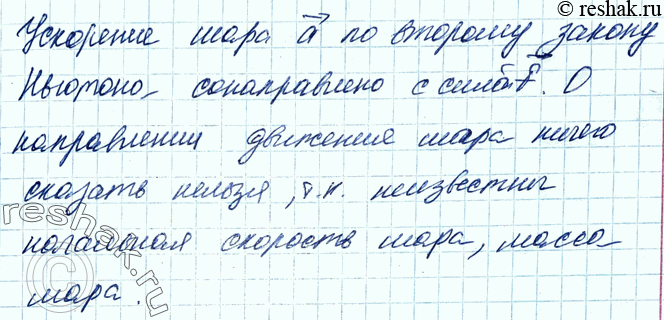 © reshak.ru
Ускорение шара a⃗ по второму закону
Ньютона сонаправлено с силой F⃗. О
направлении движения шара ничего
сказать нельзя, т.к. неизвестны
начальная скорость шара, масса
шара.
reshak.ru